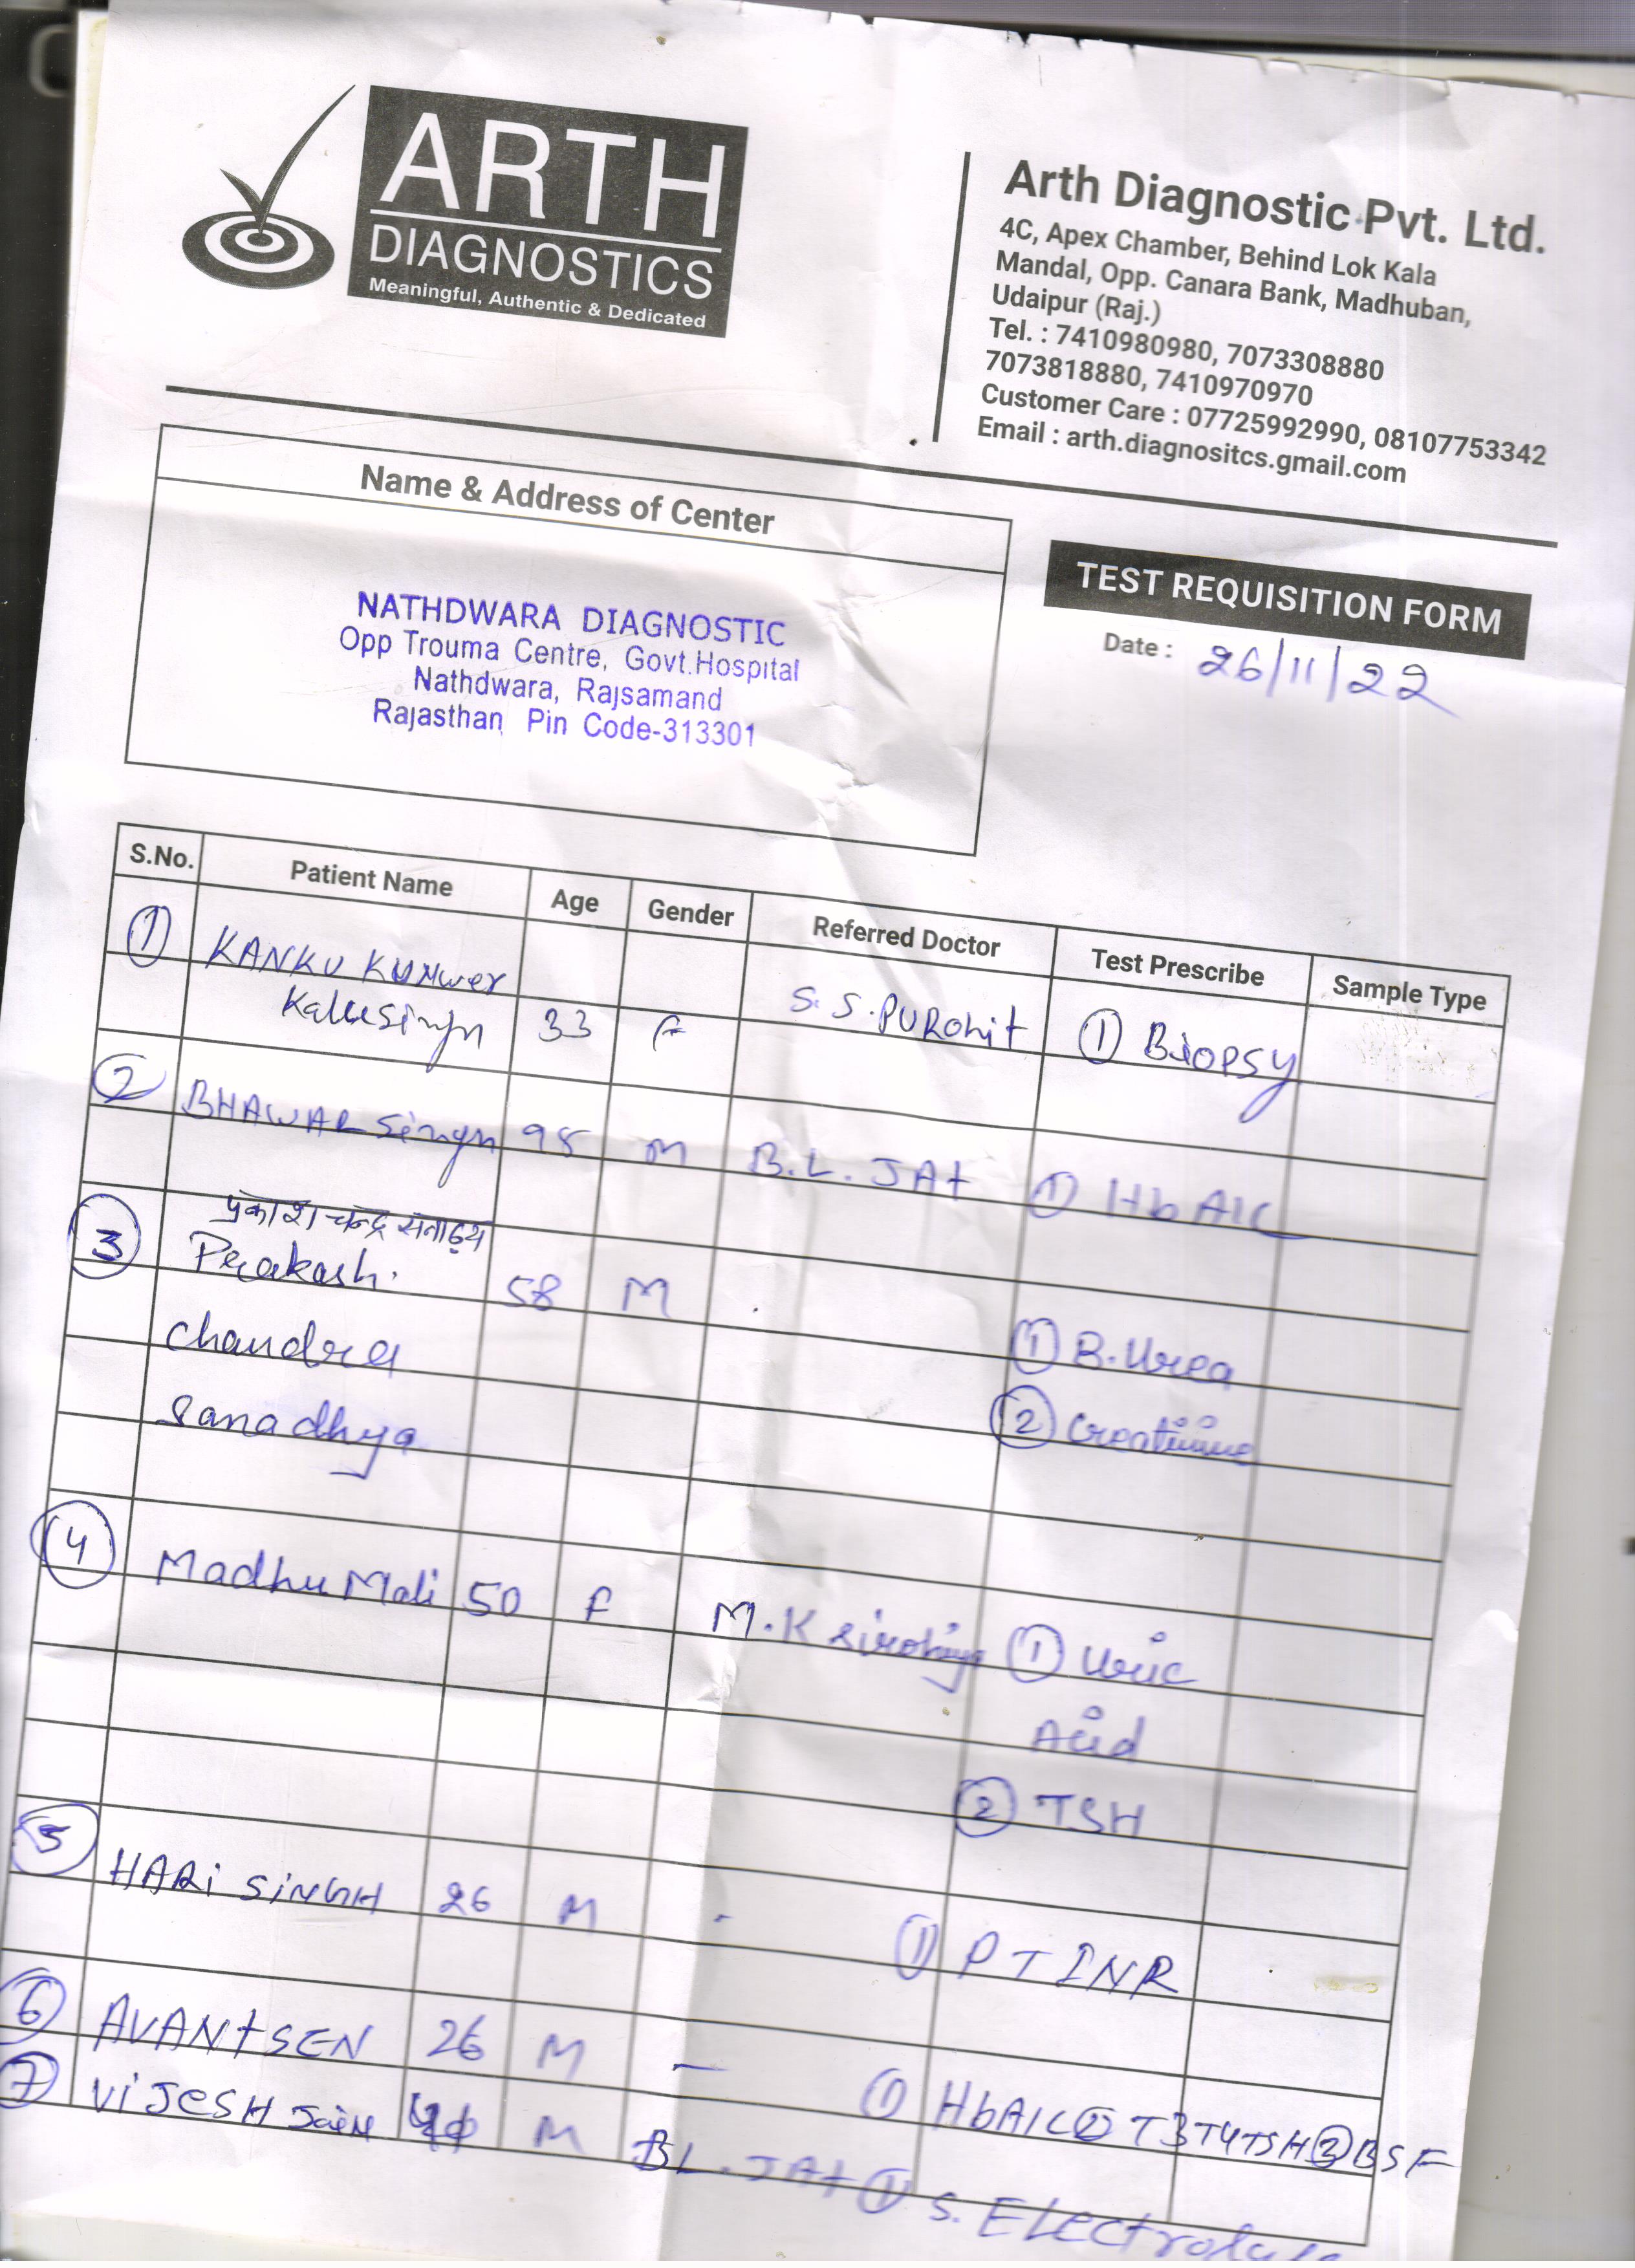 ARTH
DIAGNOSTICS
Meaningful, Authentic & Dedicated
Arth Diagnostic Pvt. Ltd.
4C, Apex Chamber, Behind Lok Kala
Mandal, Opp. Canara Bank, Madhuban,
Udaipur (Raj.)
Tel. : 7410980980, 7073308880
7073818880, 7410970970
Customer Care : 07725992990, 08107753342
Email : arth.diagnositcs.gmail.com
Name & Address of Center
NATHDWARA DIAGNOSTIC
Opp Trouma Centre, Govt.Hospital
Nathdwara, Rajsamand
Rajasthan Pin Code-313301
TEST REQUISITION FORM
Date : 26/11/22
S.No. Patient Name Age Gender Referred Doctor Test Prescribe Sample Type
1 KANKU KUNwer
Kalusingh 33 F S. S. PUROhit 1 Biopsy
2 BHAWAR Singh 95 M B.L. JAt 1 HbA1C
प्रकाश चन्द्र सनाढ्य
3 Prakash. 58 M . 1 B.Urea
Chandra 2 Creatinine
Sanadhya
4 Madhu Mali 50 F M.K Sirohiya 1 Uric
Acid
2 TSH
5 HARi SiNGH 26 M - 1 PT INR
6 AVANtSEN 26 M - 1 HbA1C 2 T3T4TSH 3 BSF
7 ViJeSH Jain M BL. JAt 1 S. Electroly